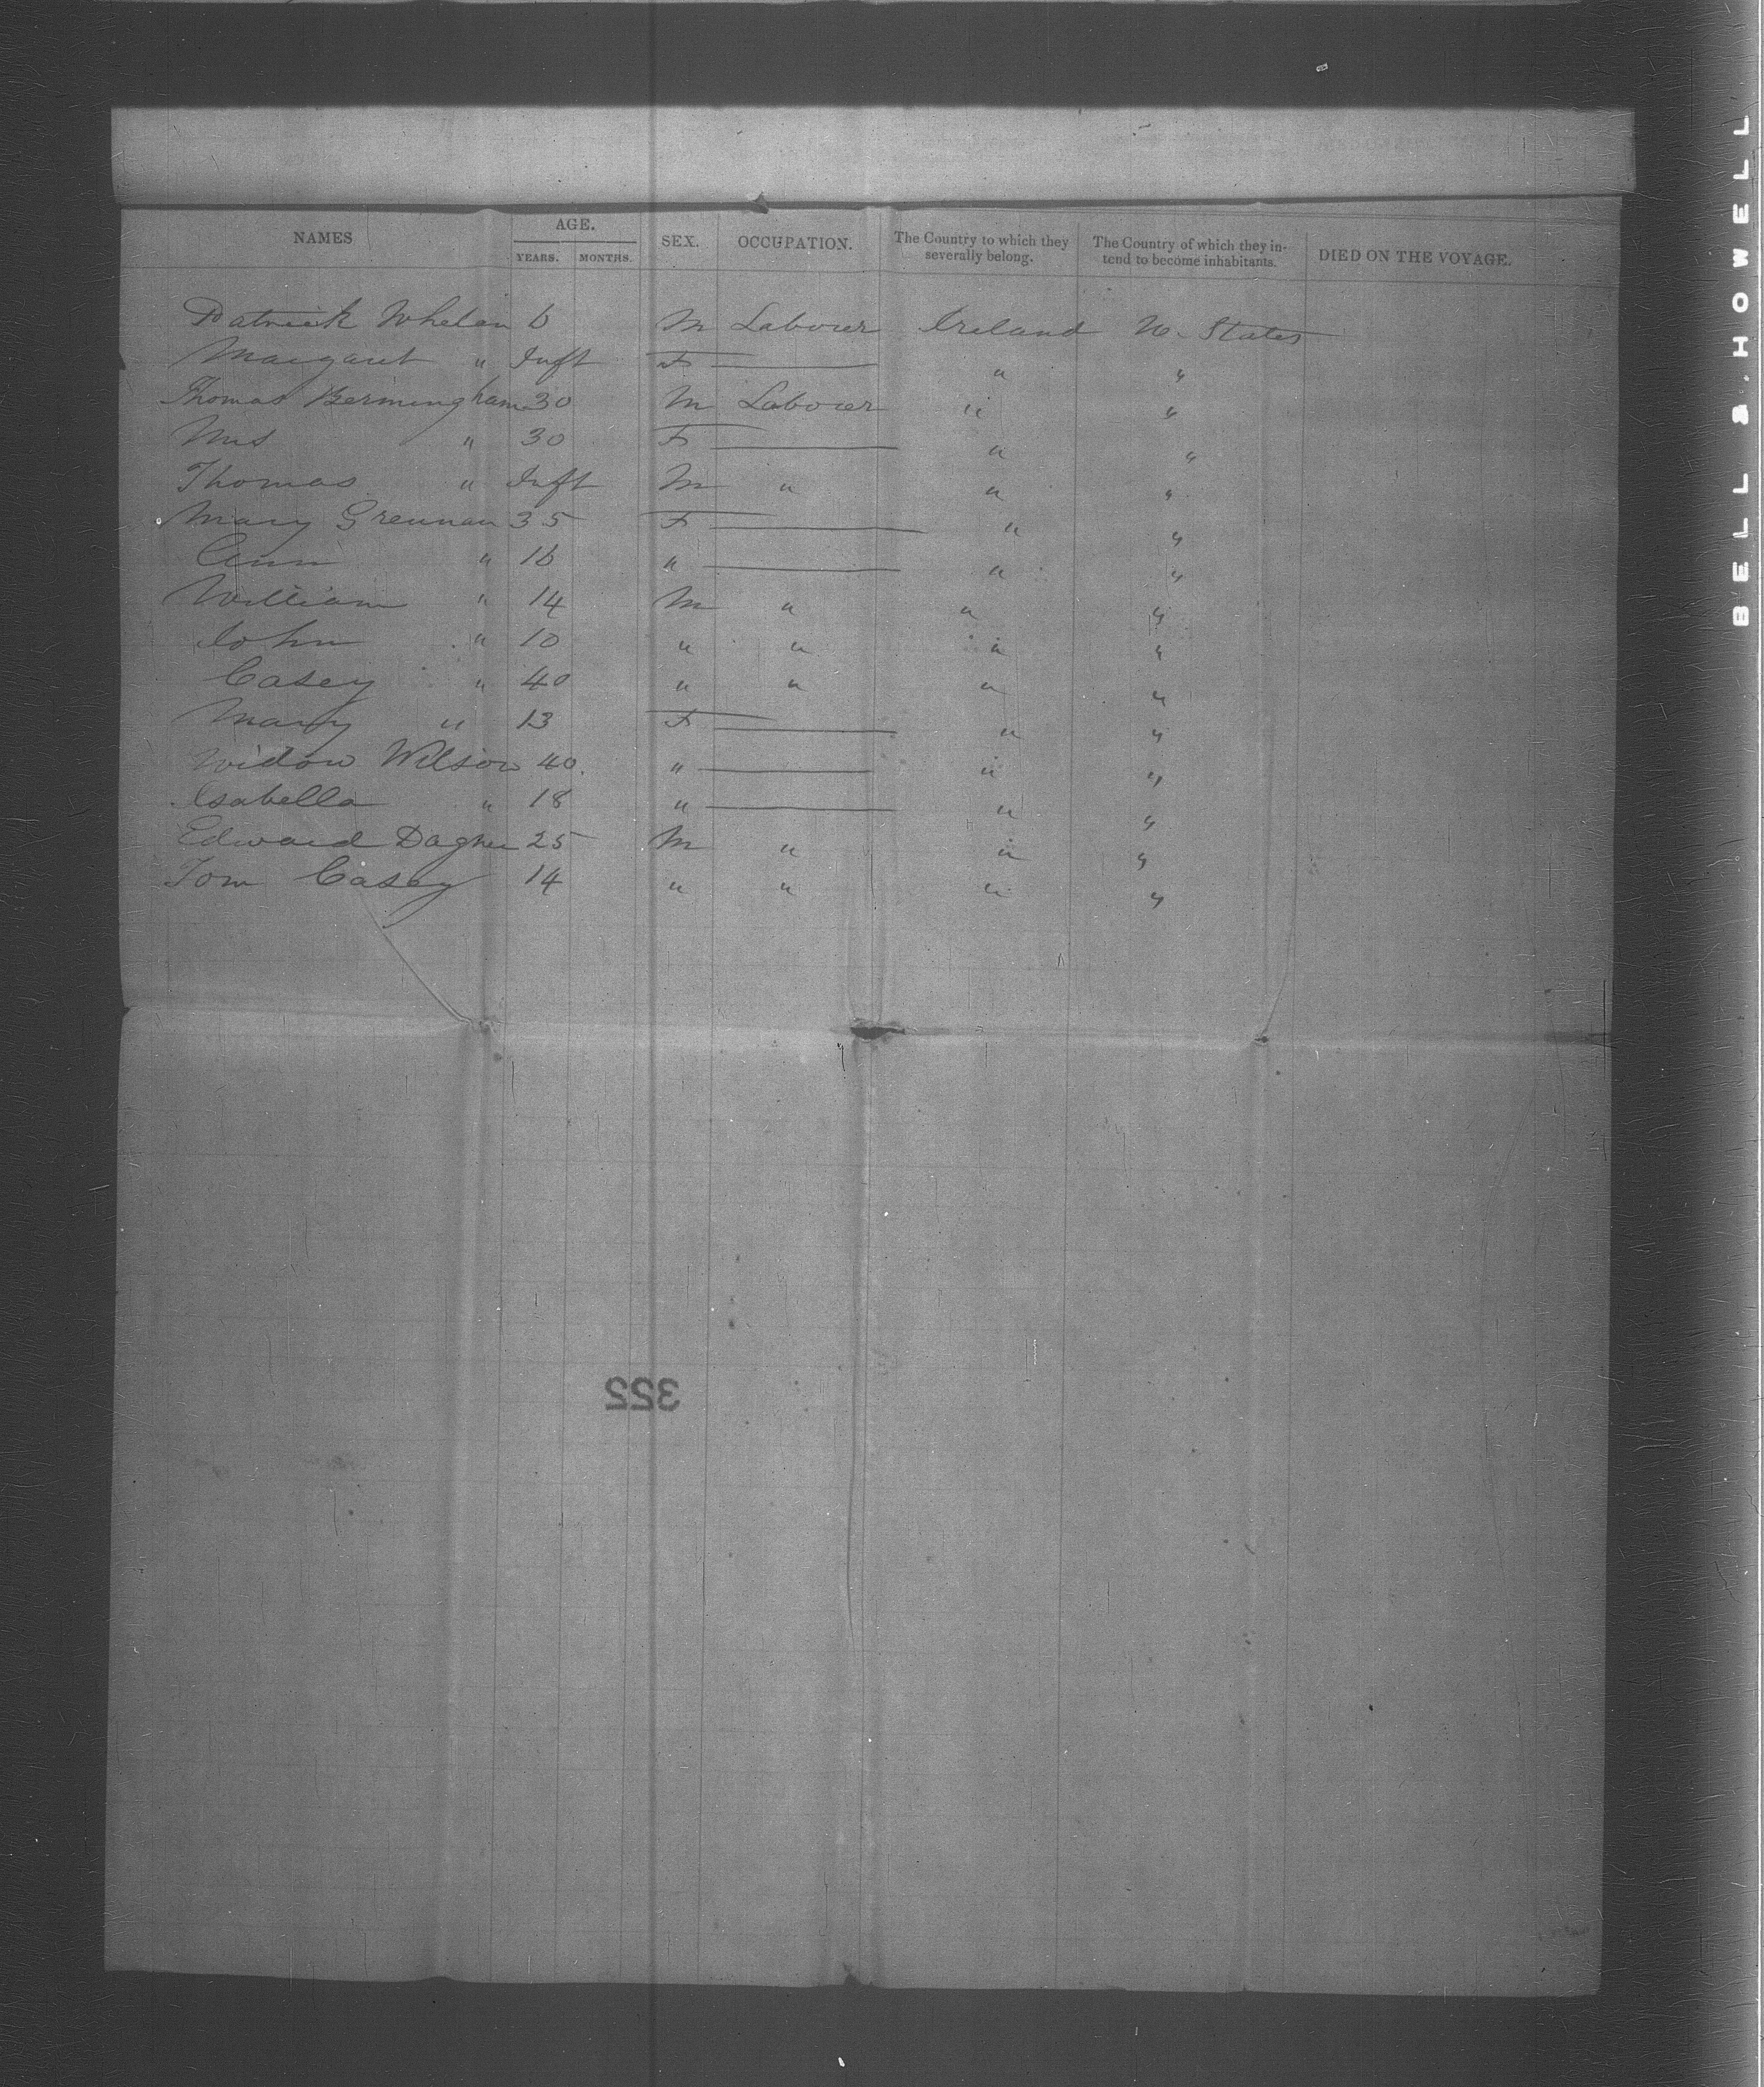 NAMES AGE. YEARS. MONTHS. SEX. OCCUPATION. The Country to which they severally belong. The Country of which they intend to become inhabitants. DIED ON THE VOYAGE.
Patrick Whelan 6 M Labourer Ireland U. States
Margaret " Inft F — " "
Thomas Bermingham 30 M Labourer " "
Mrs " 30 F — " "
Thomas " Inft M " " "
Mary Grennan 35 F — " "
Ann " 16 " — " "
William " 14 M " " "
John " 10 " " " "
Casey " 40 " " " "
Mary " 13 F — " "
Widow Wilson 40. " — " "
Isabella " 18 " — " "
Edward 25 M " " "
Tom Casey 14 " " " "
322
BELL & HOWELL